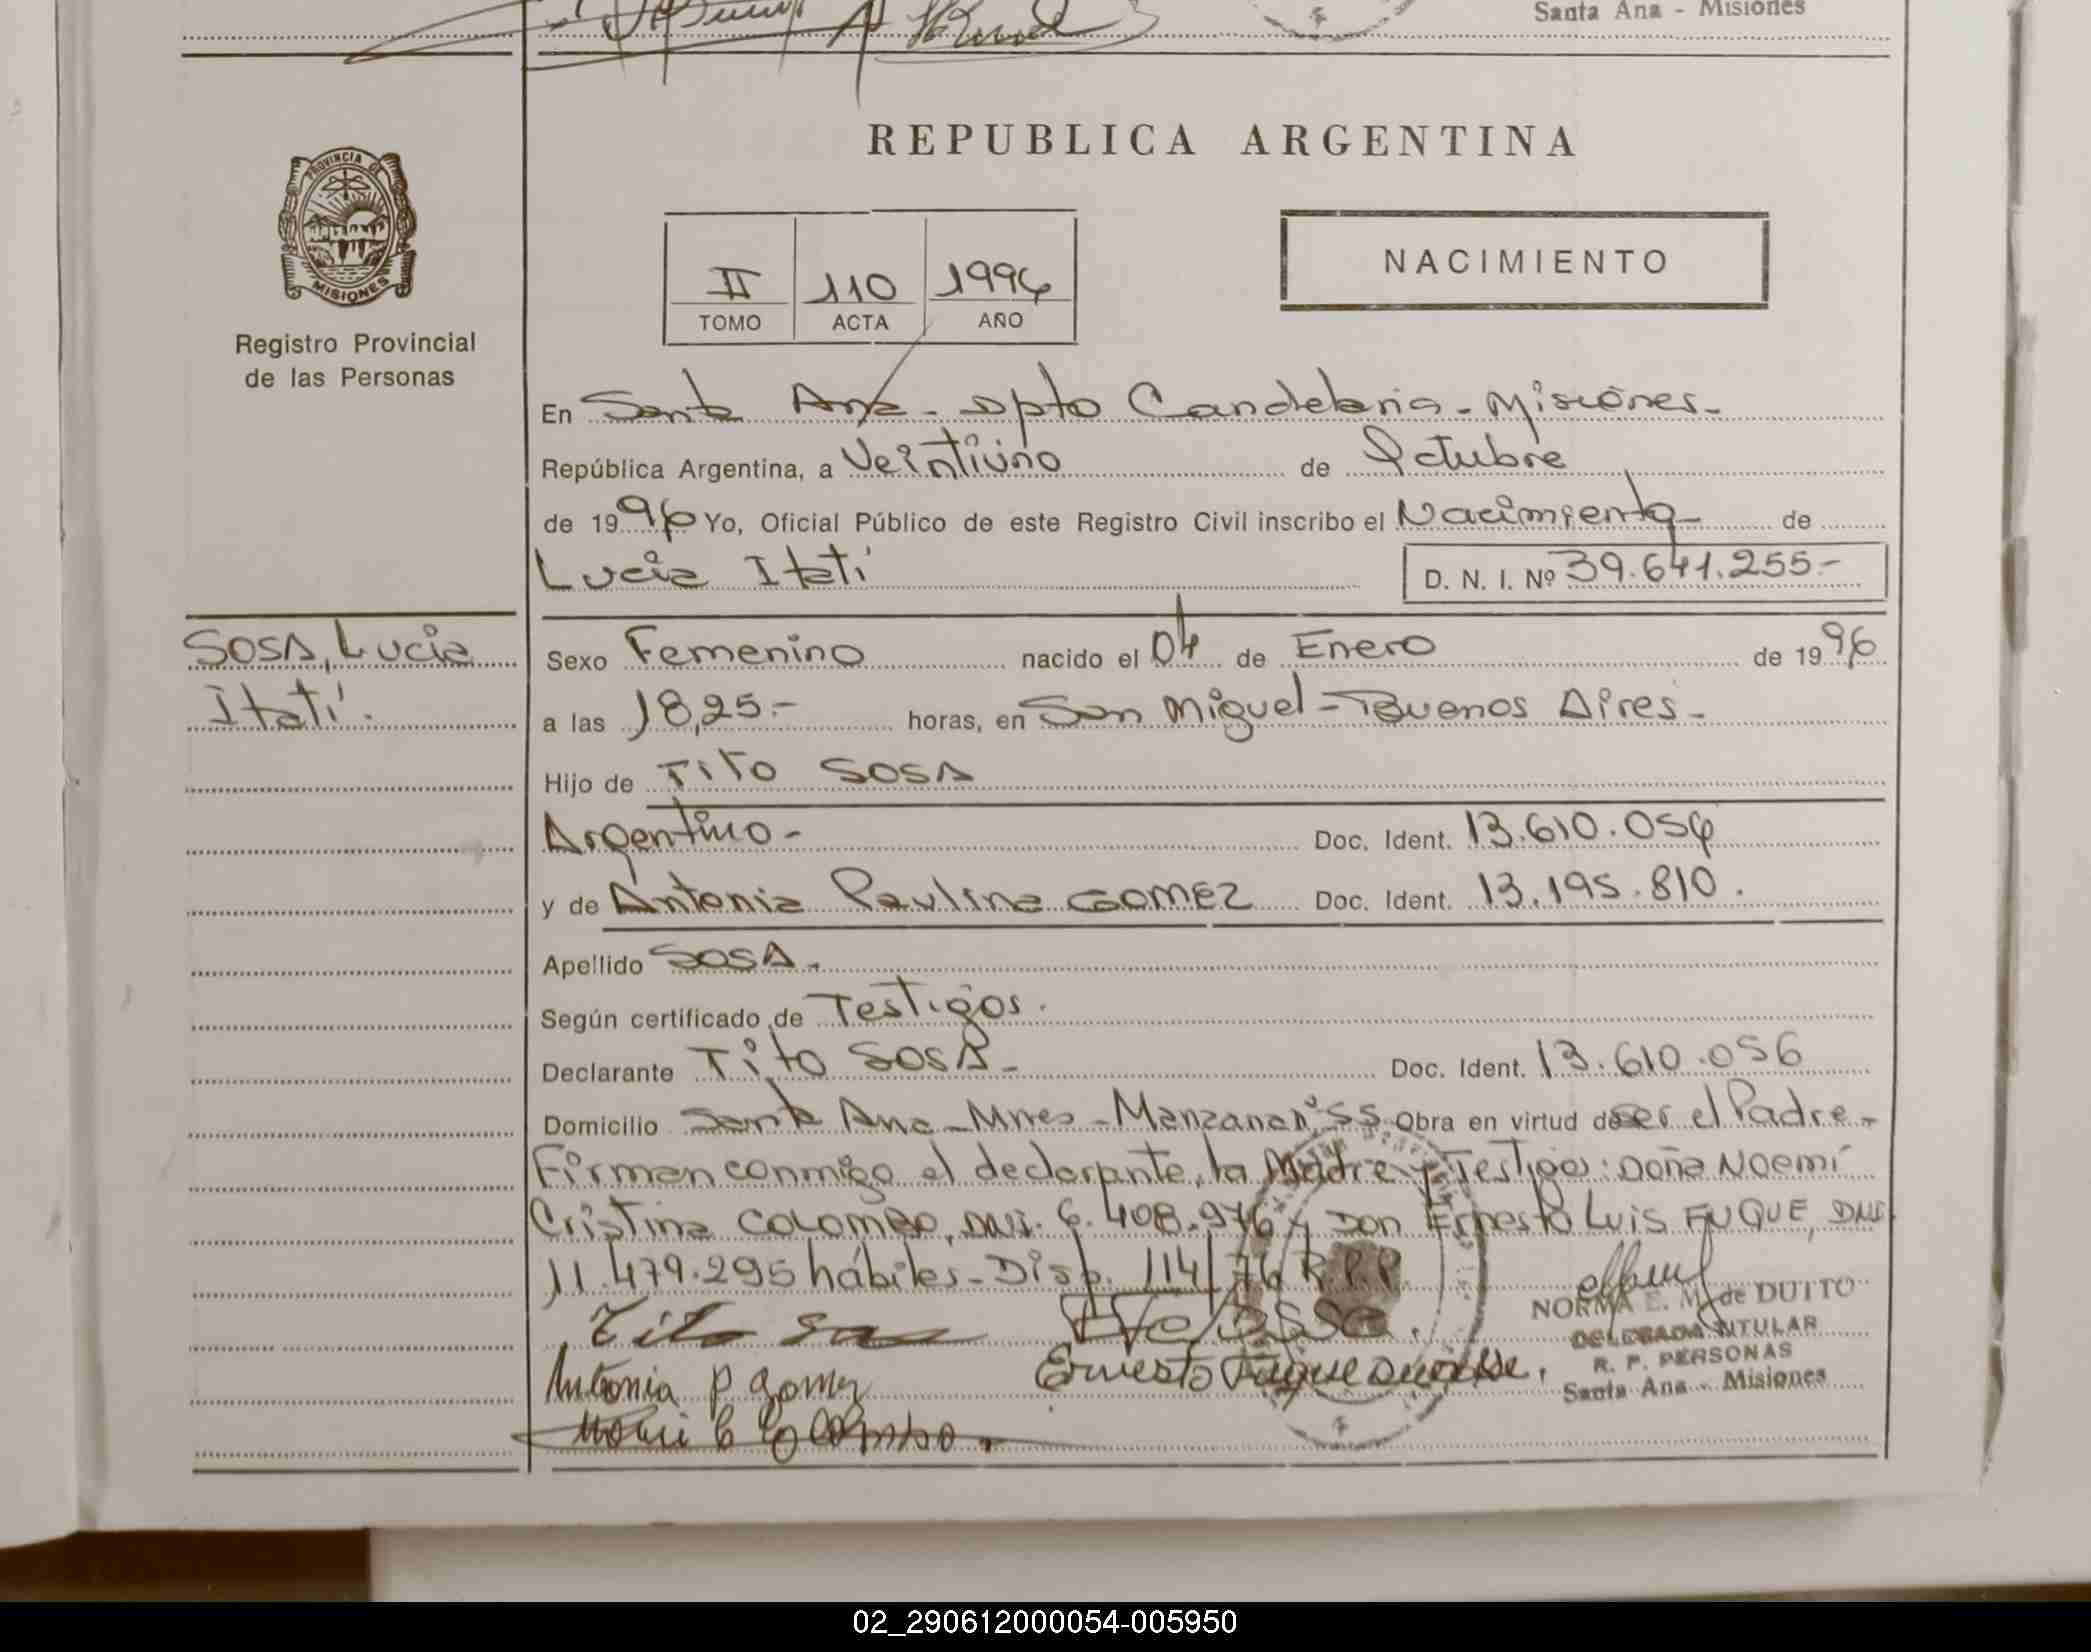 Santa Ana - Misiones
REPUBLICA ARGENTINA
PROVINCIA DE
MISIONES
Registro Provincial
de las Personas
II 110 1996
TOMO ACTA AÑO
NACIMIENTO
En Santa Ana - Dpto Candelaria - Misiones -
República Argentina, a Veintiuno de Octubre
de 1996 Yo, Oficial Público de este Registro Civil inscribo el Nacimiento - de
Lucia Itatí D. N. I. Nº 39.641.255.-
SOSA, Lucia
Itatí.
Sexo Femenino nacido el 04 de Enero de 1996
a las 18,25.- horas, en San Miguel - Buenos Aires -
Hijo de TITO SOSA
Argentino - Doc. Ident. 13.610.056
y de Antonia Paulina GOMEZ Doc. Ident. 13.195.810.
Apellido SOSA.
Según certificado de Testigos.
Declarante Tito SOSA - Doc. Ident. 13.610.056
Domicilio Santa Ana - Mnes - Manzana nº 55 Obra en virtud de ser el Padre -
Firman conmigo el declarante, la Madre y Testigos: Doña Noemí
Cristina COLOMBO, DNI. 6.408.976 y Don Ernesto Luis FUQUE, DNI
11.479.295 hábiles - Disp. 114/76 R.P.P.
Tito Sosa
NORMA E. M. de DUITO
DELEGADA TITULAR
R. P. PERSONAS
Santa Ana - Misiones
Antonia P Gomez Ernesto Fuque
02_290612000054-005950